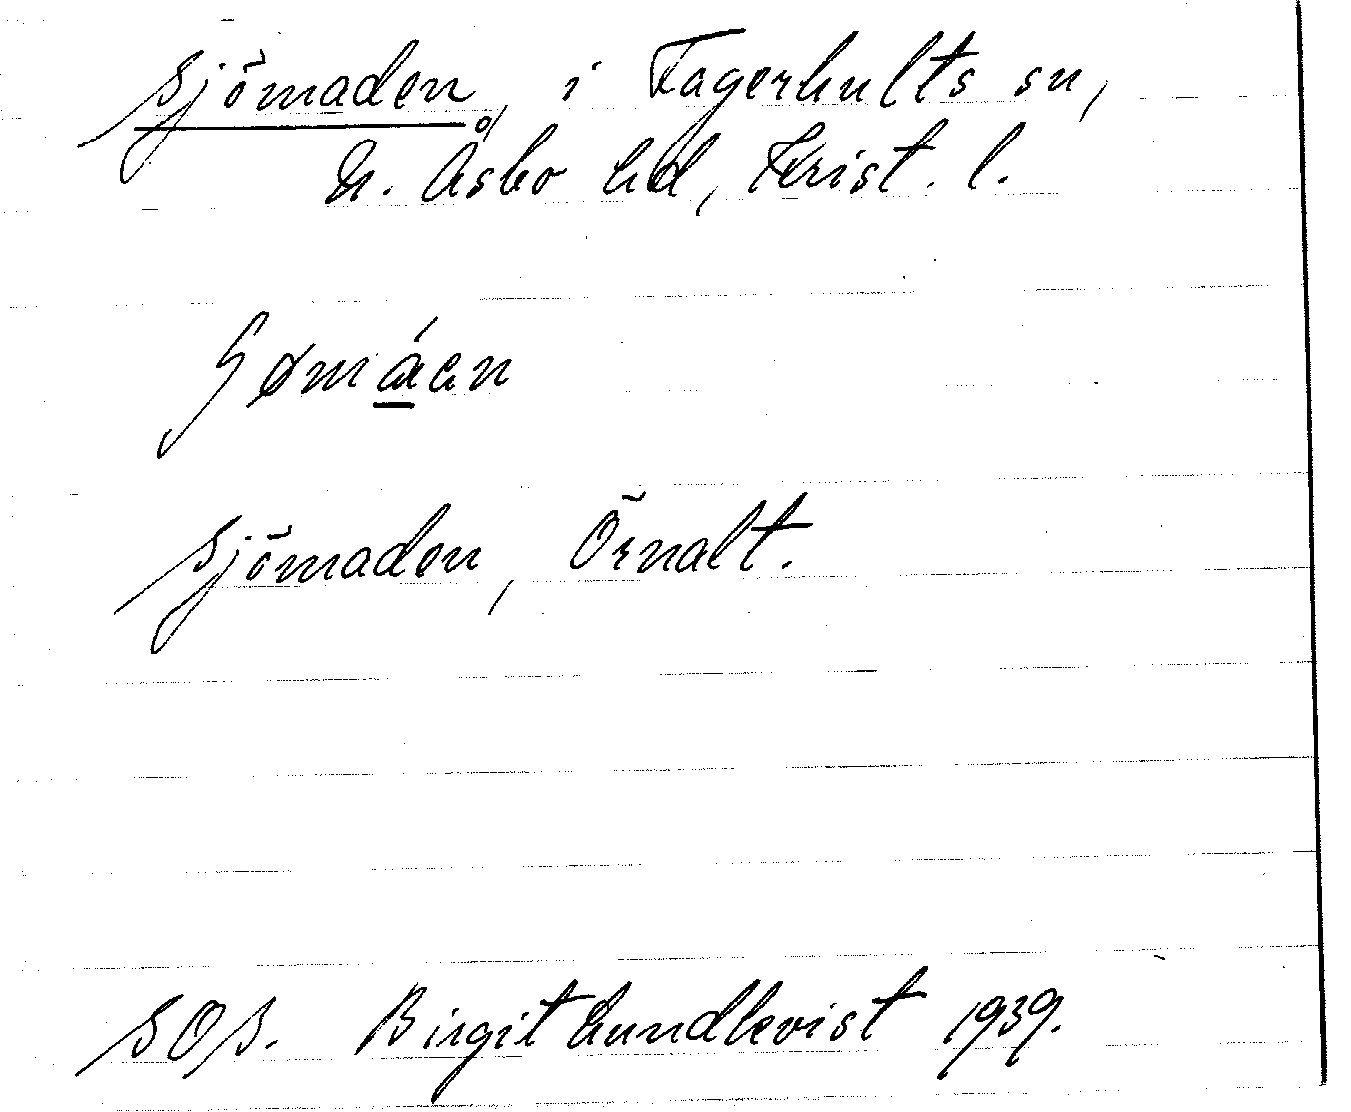 Sjömaden, i Fagerhults sn,
N. Åsbo hd, Krist. l.
Sjömaden, Örnalt.
SOS. Birgit Lundkvist 1939.